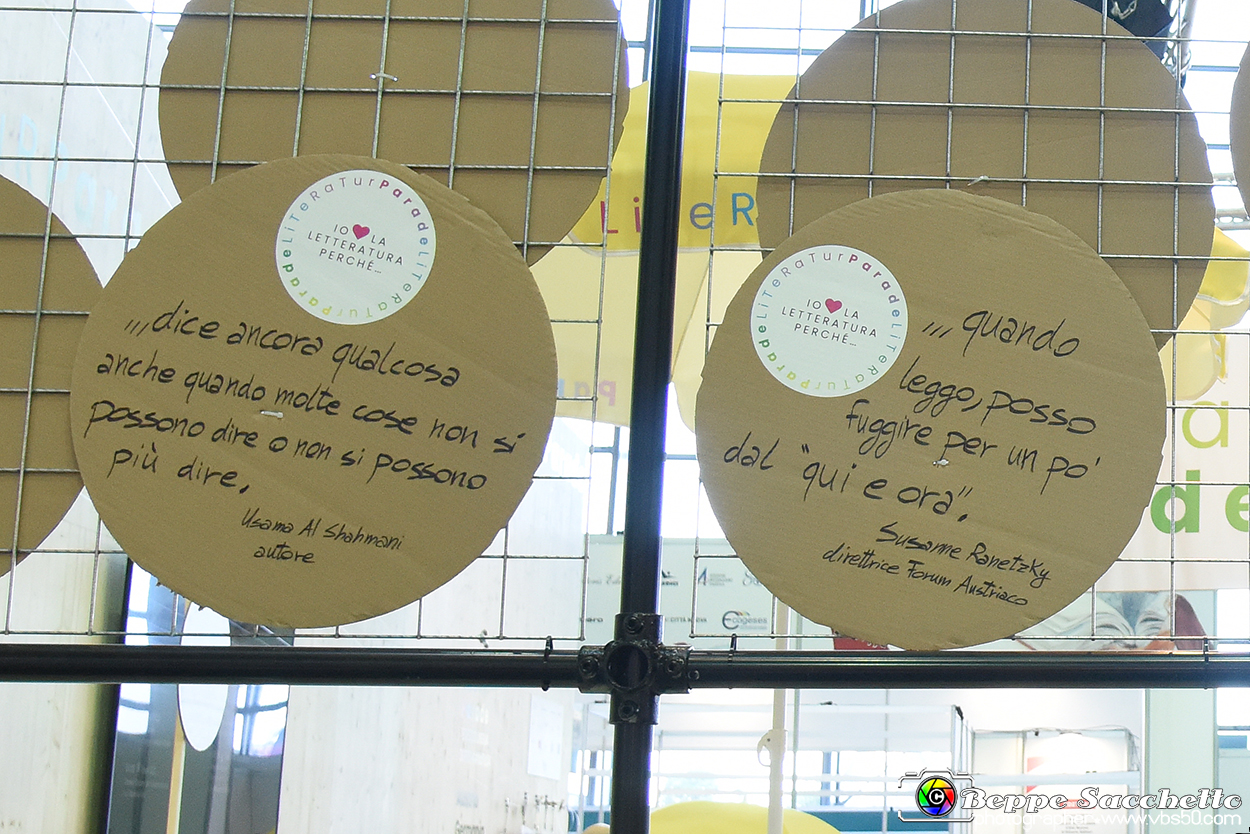 LiTeRaTurParadeLiTeRaTurParade
IO LA
LETTERATURA
PERCHÉ...
,,,dice ancora qualcosa
anche quando molte cose non si
possono dire o non si possono
più dire.
Usama Al Shahmani
autore
LiTeRaTurParadeLiTeRaTurParade
IO LA
LETTERATURA
PERCHÉ...
,,,quando
leggo, posso
fuggire per un po'
dal "qui e ora".
Susanne Ranetzky
direttrice Forum Austriaco
LiTeR
a
de
Beppe Sacchetto
photographer www.vbs50.com